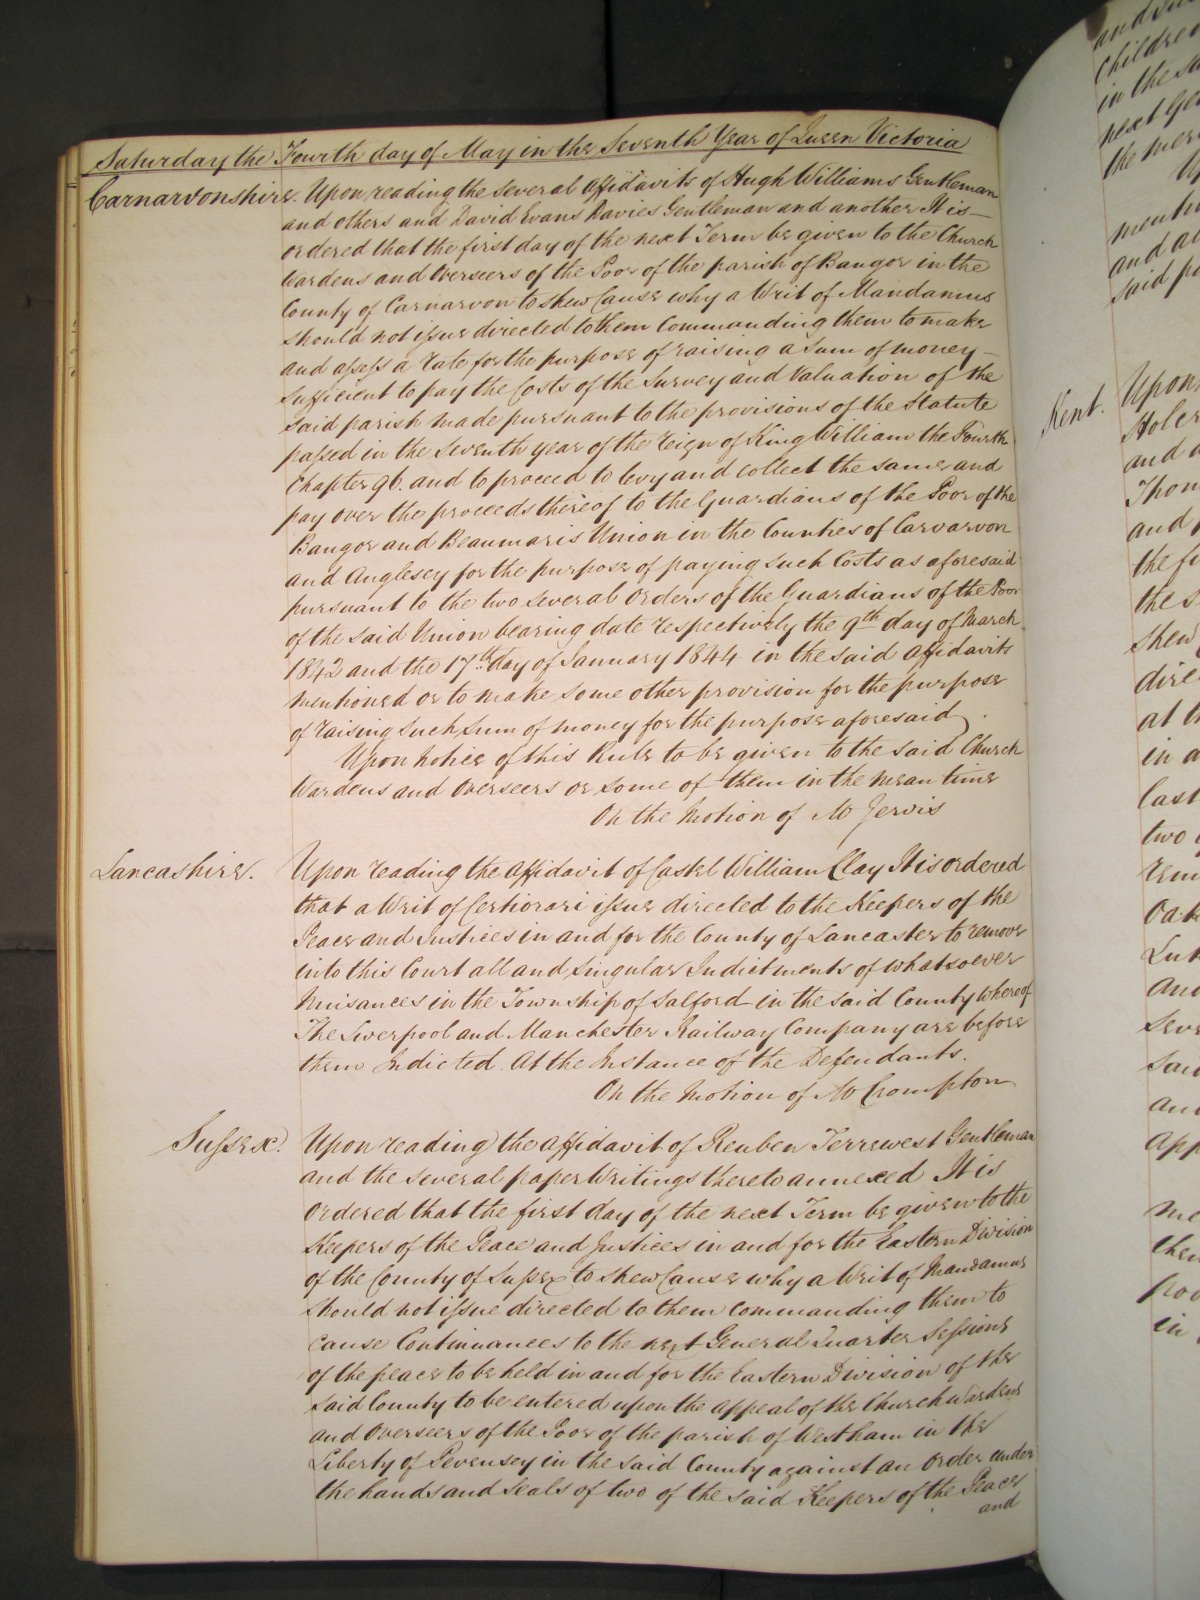 Saturday the Fourth day of May in the Seventh Year of Queen Victoria
Carnarvonshire. Upon reading the several Affidavits of Hugh Williams Gentleman
and others and David Evans Davies Gentleman and another It is
ordered that the first day of the next Term be given to the Church
Wardens and Overseers of the Poor of the parish of Bangor in the
County of Carnarvon to shew Cause why a Writ of Mandamus
should not issue directed to them Commanding them to make
and assess a rate for the purpose of raising a sum of money
sufficient to pay the Costs of the Survey and Valuation of the
said parish made pursuant to the provisions of the Statute
passed in the Seventh year of the reign of King William the Fourth
Chapter 96. and to proceed to levy and collect the same and
pay over the proceeds thereof to the Guardians of the Poor of the
Bangor and Beaumaris Union in the Counties of Carvarvon
and Anglesey for the purpose of paying such Costs as aforesaid
pursuant to the two several orders of the Guardians of the Poor
of the said Union bearing date respectively the 9th day of March
1842 and the 17th day of January 1844 in the said Affidavits
mentioned or to make some other provision for the purpose
of raising such sum of money for the purpose aforesaid.
Upon notice of this Rule to be given to the said Church
Wardens and Overseers or some of them in the mean time
On the Motion of Mr Jervis
Lancashire. Upon reading the Affidavit of Castel William Clay It is ordered
that a Writ of Certiorari issue directed to the Keepers of the
Peace and Justices in and for the County of Lancaster to remove
into this Court all and singular Indictments of whatsoever
Nuisances in the Township of Salford in the said County whereof
The Liverpool and Manchester Railway Company are before
them Indicted. At the Instance of the Defendants.
On the Motion of Mr Crompton
Sussex. Upon reading the affidavit of Reuben Terrewest Gentleman
and the several paper Writings thereto annexed It is
ordered that the first day of the next Term be given to the
Keepers of the Peace and Justices in and for the Eastern Division
of the County of Sussex to shew Cause why a Writ of Mandamus
should not issue directed to them commanding them to
cause Continuances to the next General Quarter Sessions
of the peace to be held in and for the Eastern Division of the
said County to be entered upon the appeal of the Churchwardens
and Overseers of the Poor of the parish of Westham in the
Liberty of Pevensey in the said County against an order under
the hands and seals of two of the said Keepers of the Peace
and
Children
in the
next
the
said
Kent. Upon
and
and
the
the
shew
at the
in
last
two
and
them
in